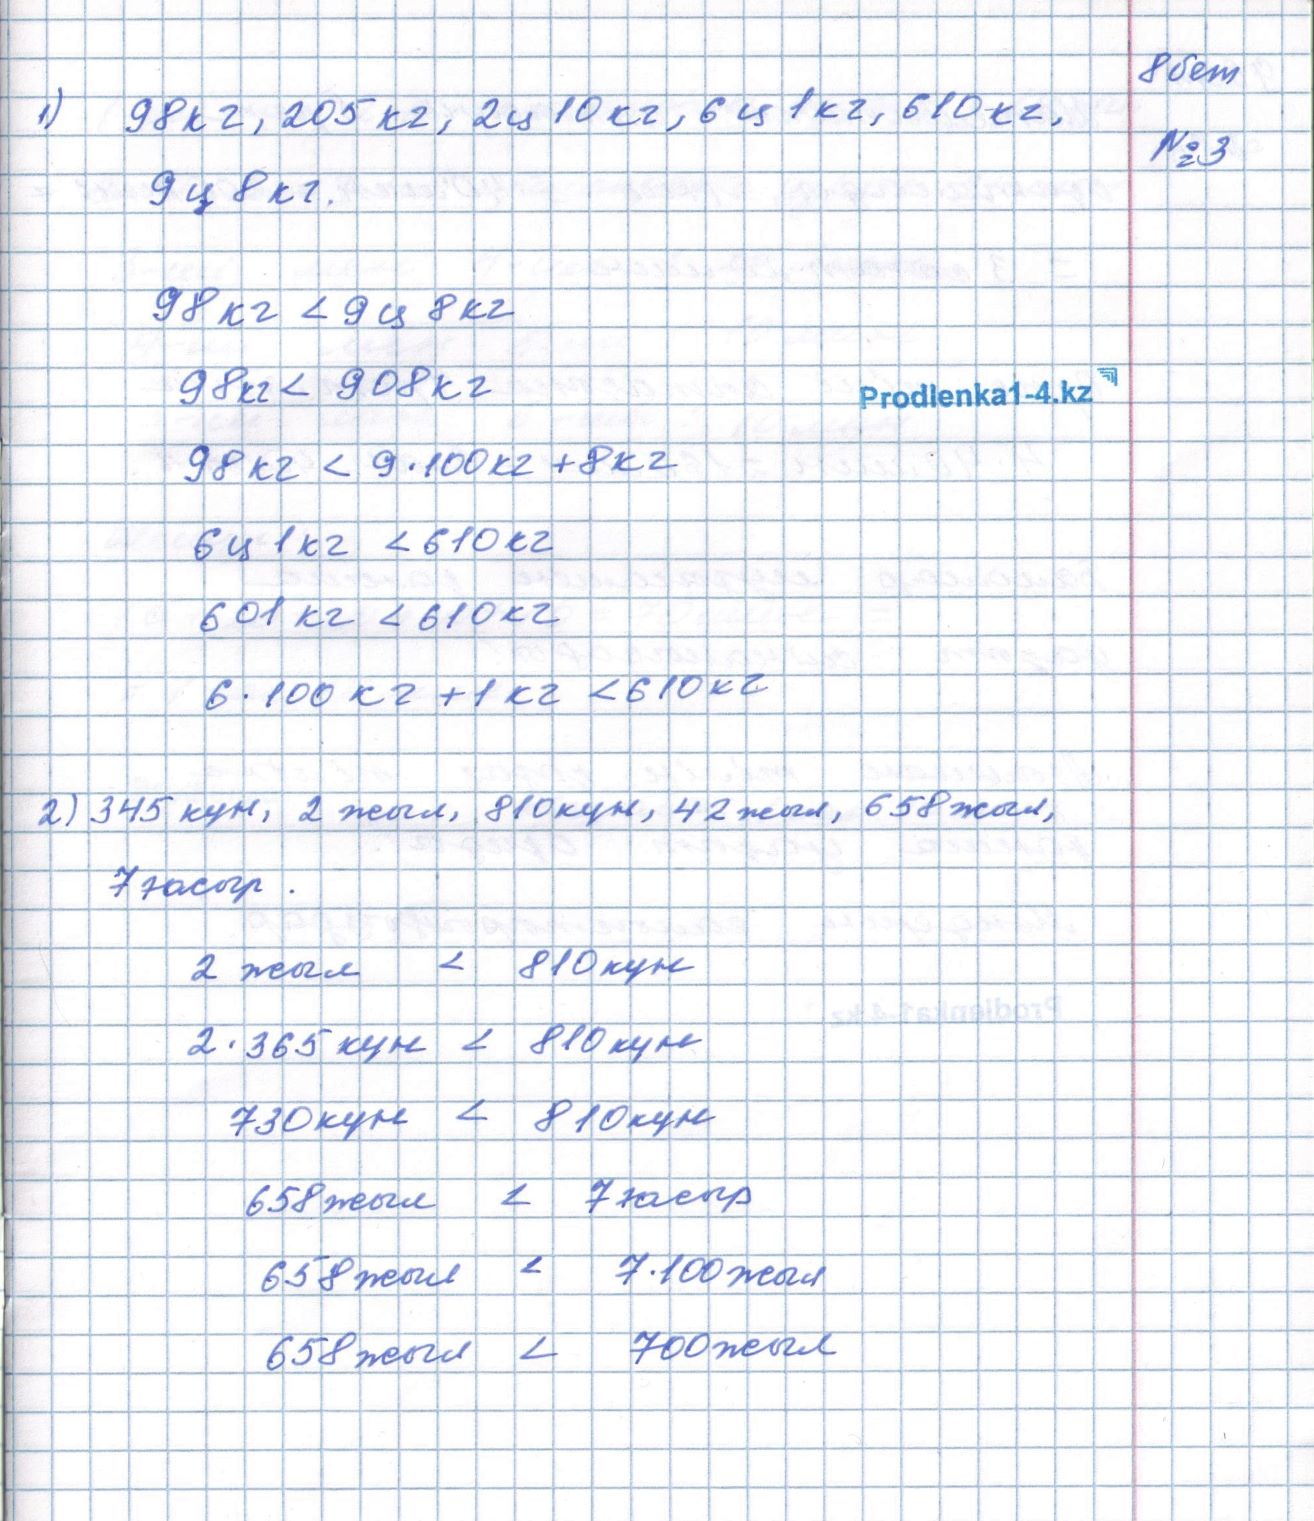 8бет
№3
1) 98кг, 205кг, 2ц 10кг, 6ц 1кг, 610кг,
9ц 8кг.
98кг < 9ц 8кг
98кг < 908кг
Prodlenka1-4.kz
98кг < 9·100кг + 8кг
6ц 1кг < 610кг
601кг < 610кг
6·100кг + 1кг < 610кг
2) 345 кун, 2 жыл, 810кун, 42жыл, 658жыл,
7 ғасыр.
2 жыл < 810кун
2·365 кун < 810кун
730кун < 810кун
658жыл < 7 ғасыр
658жыл < 7·100жыл
658жыл < 700жыл